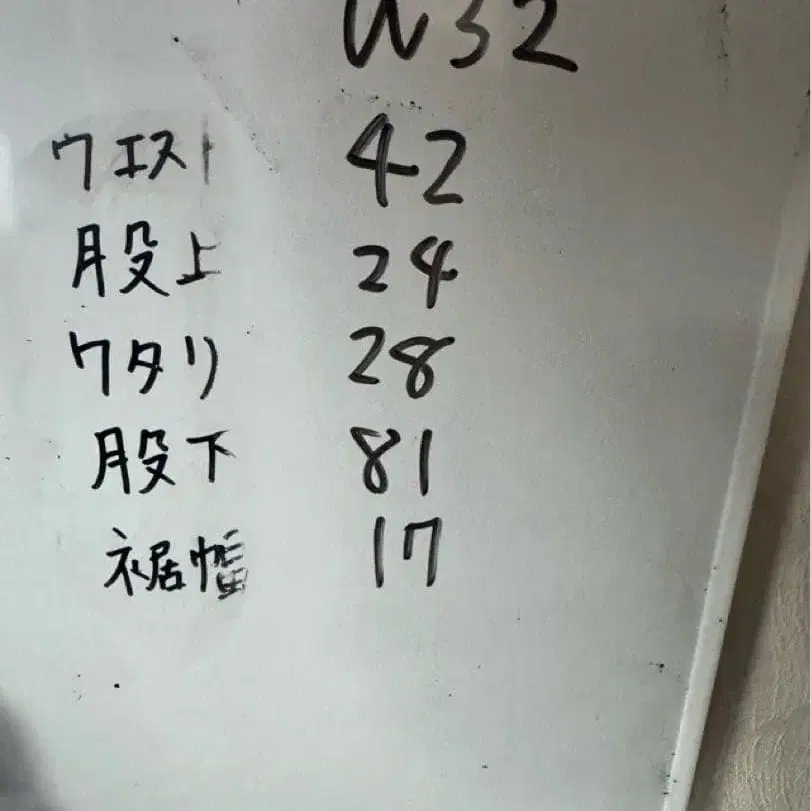 W32
ウエスト 42
股上 24
ワタリ 28
股下 81
裾幅 17